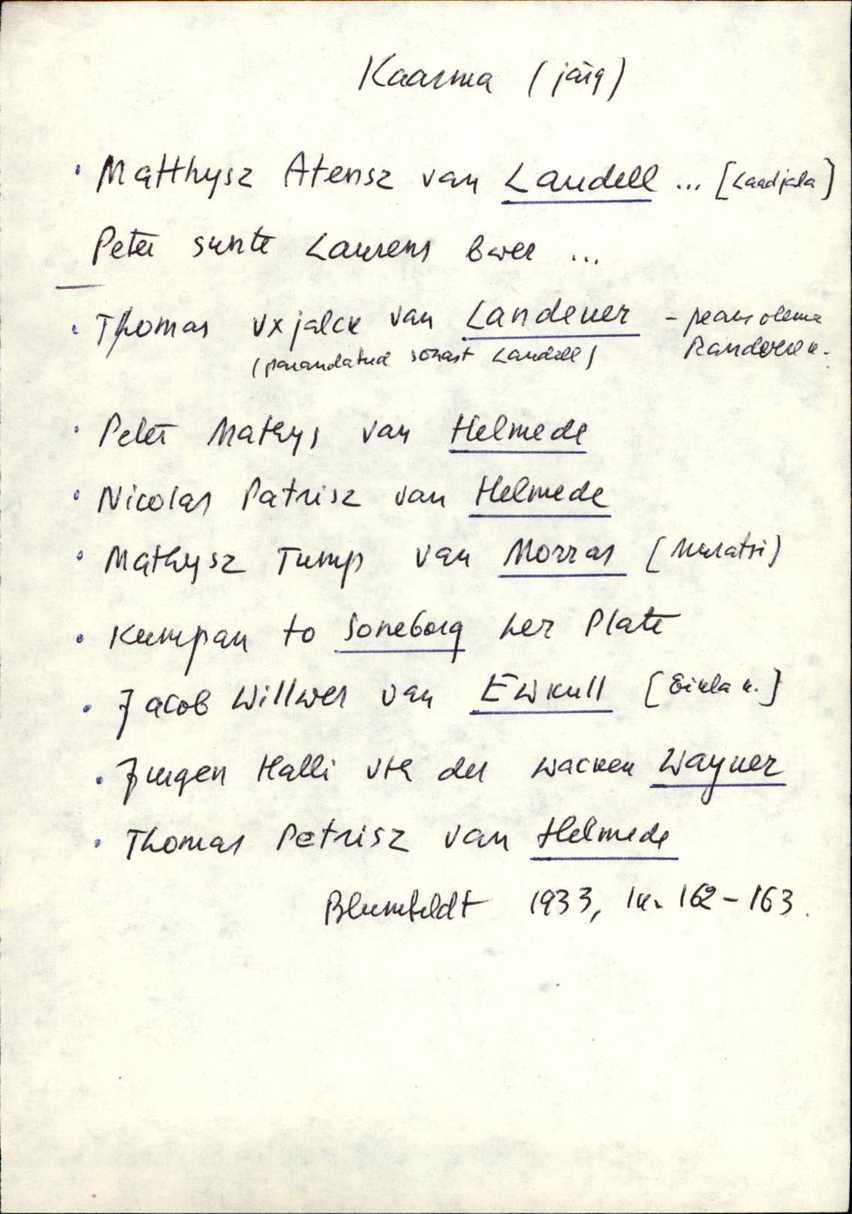 Kaarma (järg)
· Matthysz Atensz van Landell ... [Laadjala]
Peter sunte Laurens Bwer ...
· Thomas vxjalck van Landever – peaks olema
(parandatud sõnast Landell) Randvere k.
· Peter Mathys van Helmede
· Nicolas Patrisz van Helmede
· Mathysz Tump van Morras [Muratsi]
· Kumpan to Soneborg her Plate
· Jacob Willwes van Ewkull [Eikla k.]
· Jurgen Halli vth der wacken Wayner
· Thomas Petrisz van Helmede
Blumfeldt 1933, lk. 162–163.